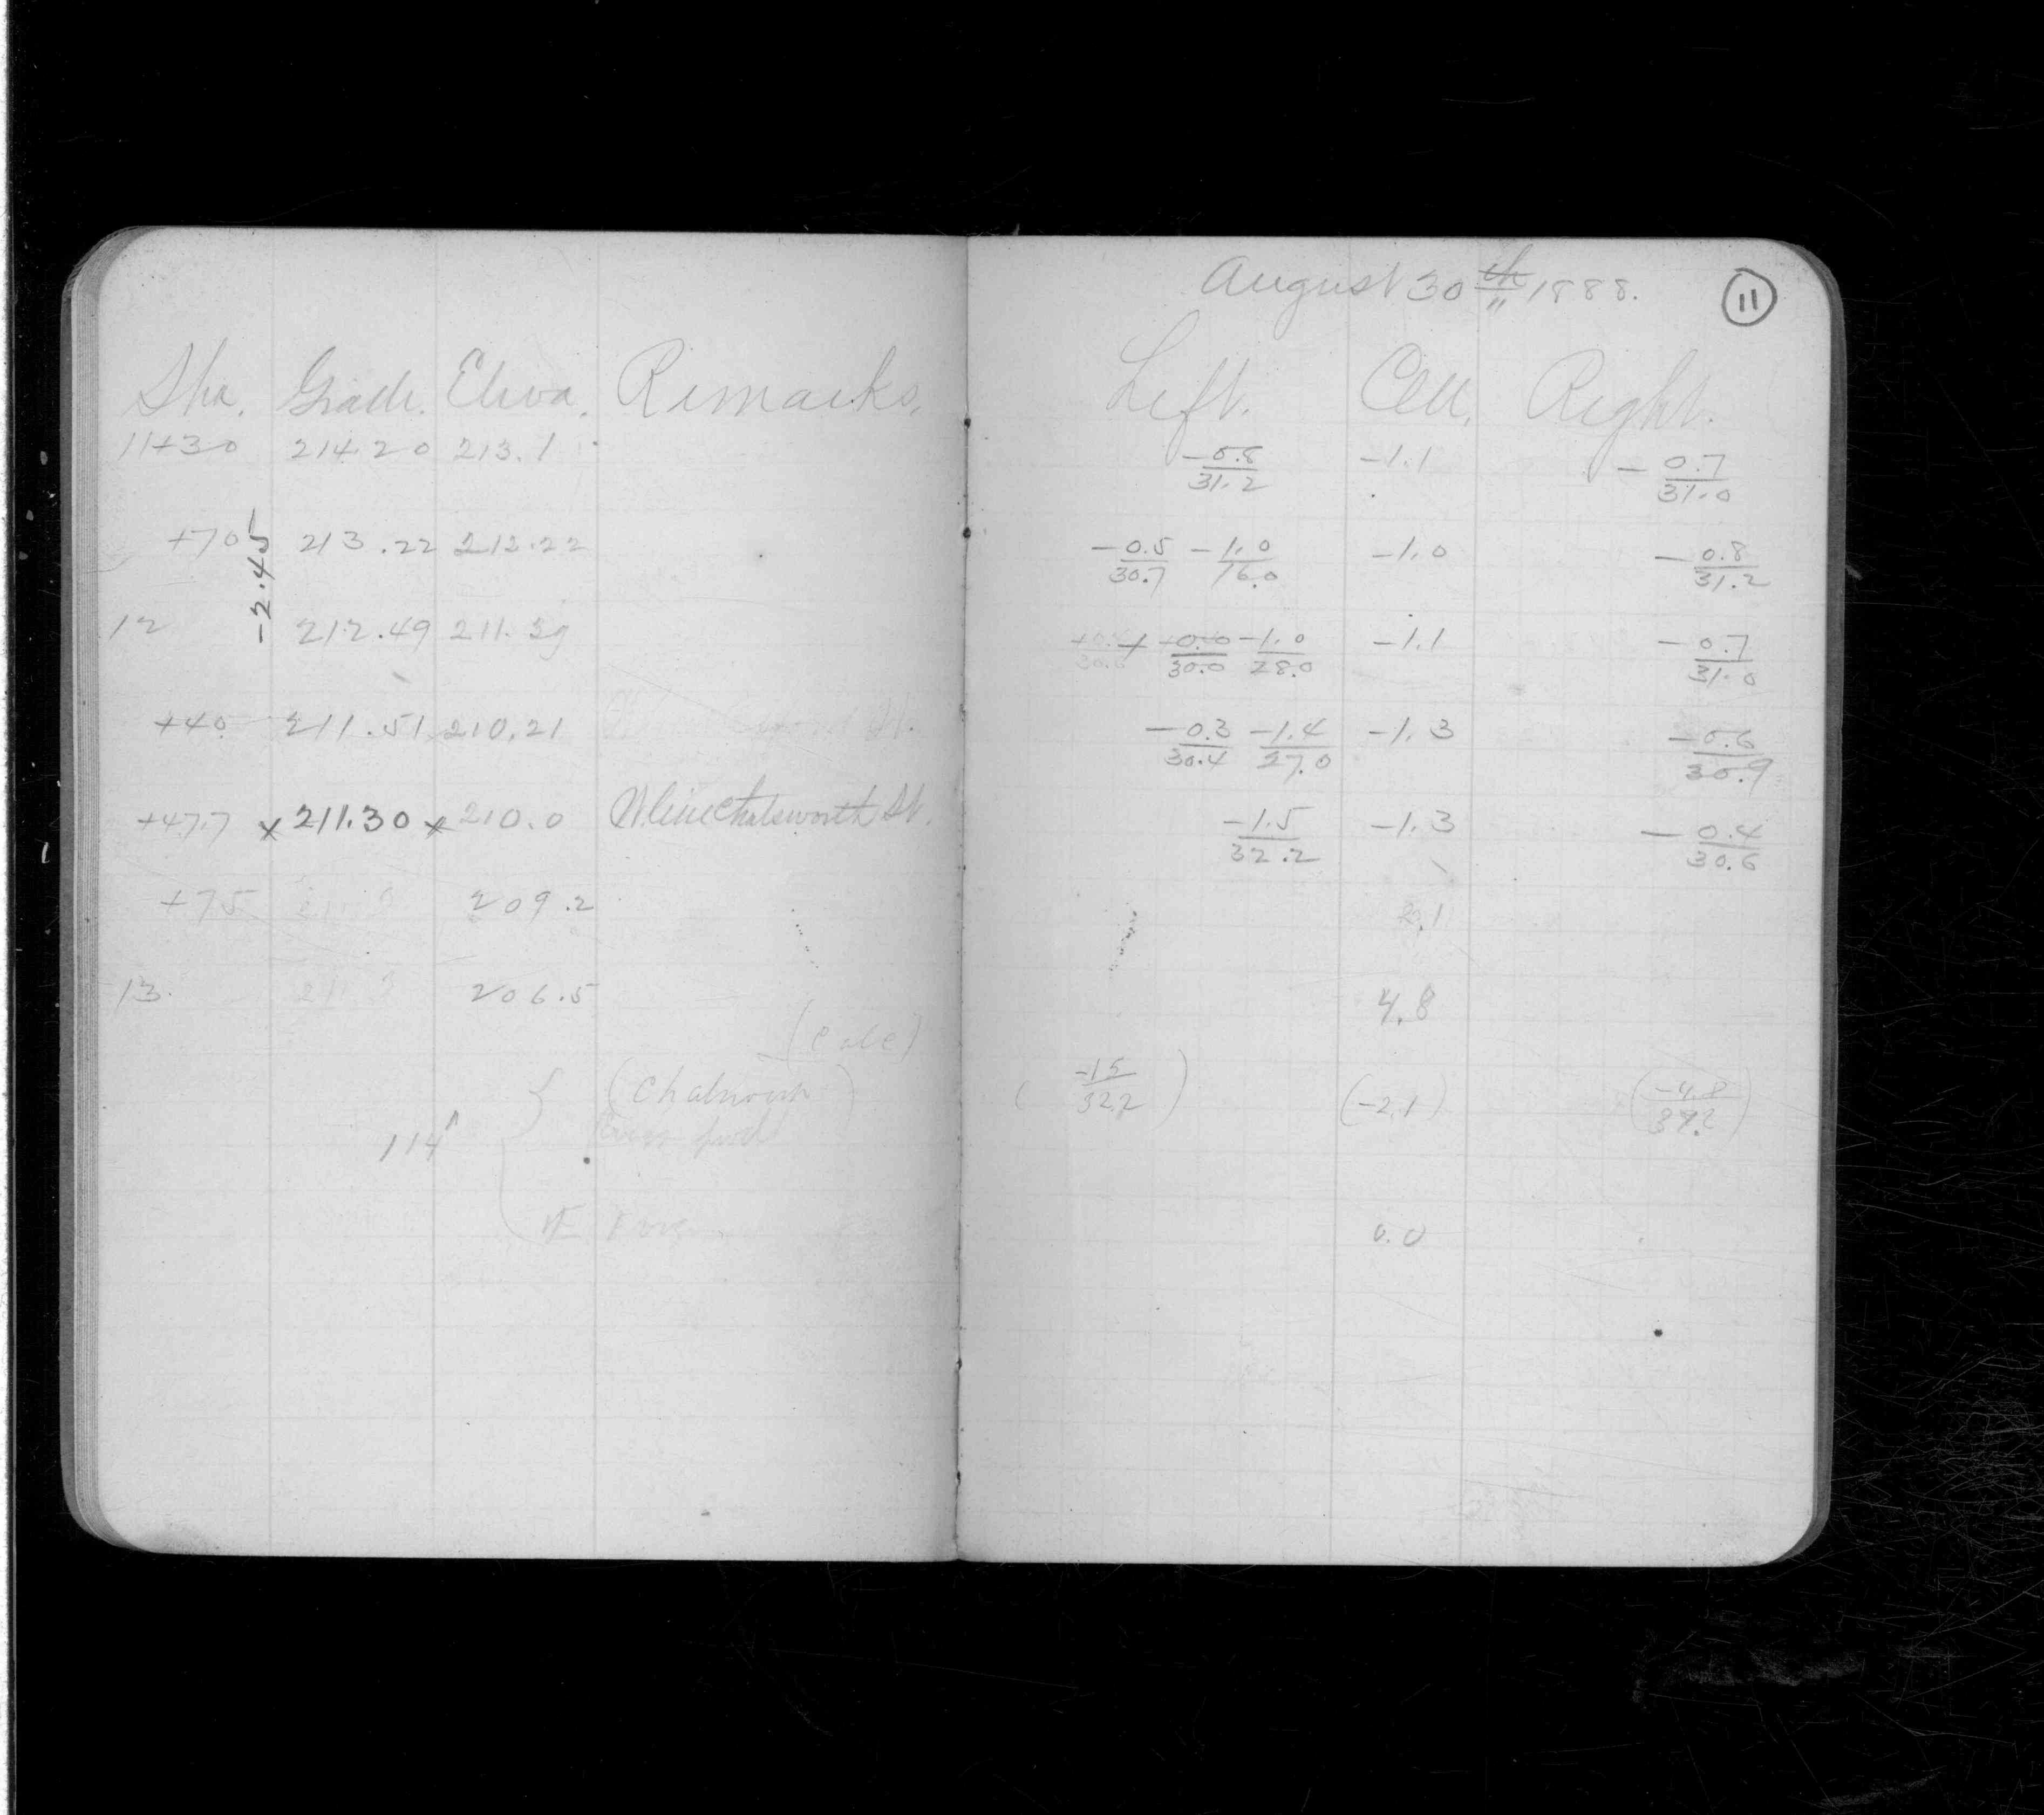 August 30th 1888. 11
Sta. Grade. Eleva. Remarks. Left. Cen. Right.
11+30 214.20 213.1 -0.8/31.2 -1.1 -0.7/31.0
-2.45
+70 213.22 212.22 -0.5/30.7 -1.0/16.0 -1.0 -0.8/31.2
12 212.49 211.39 +0.0/30.0 -1.0/28.0 -1.1 -0.7/31.0
+40 211.51 210.21 St. -0.3/30.4 -1.4/27.0 -1.3 -0.6/30.9
+47.7 x 211.30 x 210.0 W. line Chatsworth St. -1.5/32.2 -1.3 -0.4/30.6
+75 209.2 2.1
13. 206.5 4.8
(Chatsworth) (-15/32.2) (-2.1) (-4.8/37.2)
114
0.0